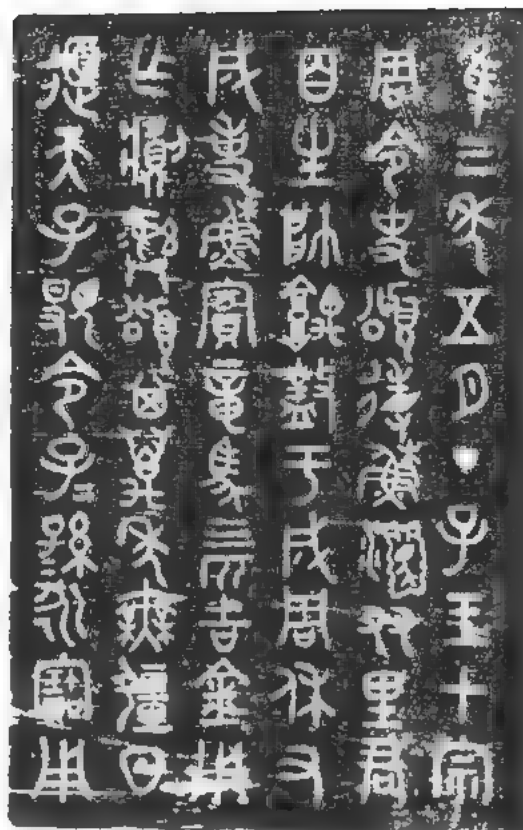 隹三年五月丁子王才宗
周令史頌省穌友里君
百生帥堣盩于成周休又
成事穌賓章馬四匹吉金用
乍彝頌其萬年無疆日
天子顯令子＝孫＝永寶用